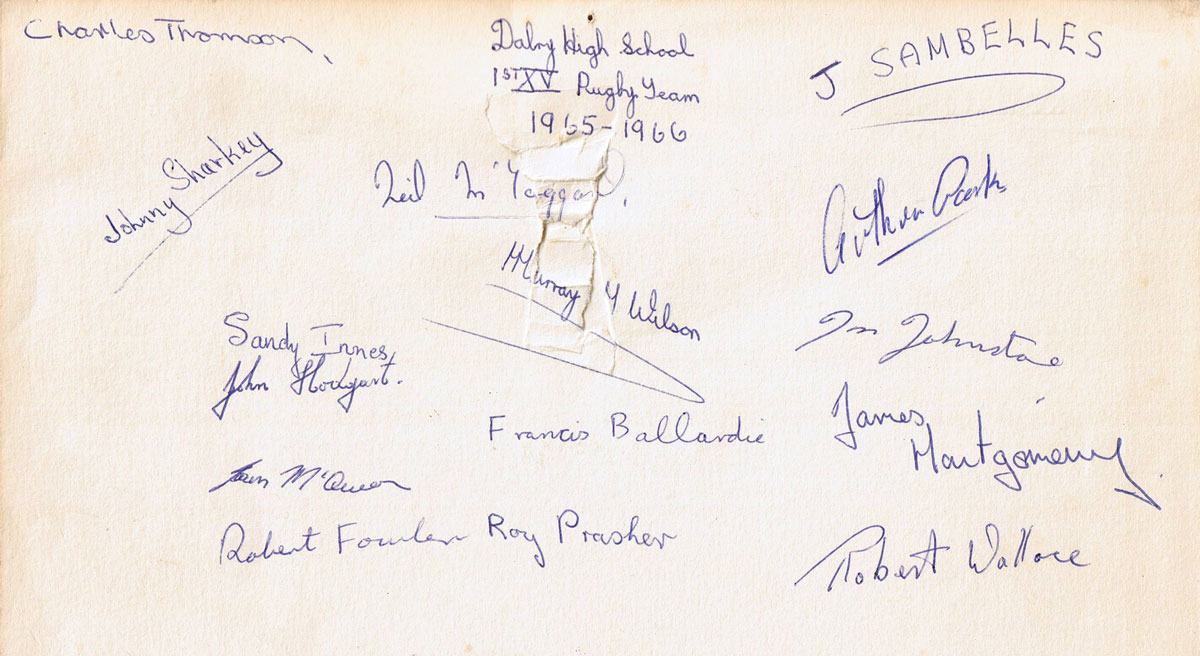 Charles Thomson,
Dalry High School
1ST XV Rugby Team
1965-1966
J SAMBELLES
Johnny Sharkey
Neil McTaggart,
Arthur Park
Murray Y Wilson
Sandy Innes,
John Hodgart.
Johnstone
Francis Ballardie
James
Montgomery
Robert Fowler Roy Prasher
Robert Wallace